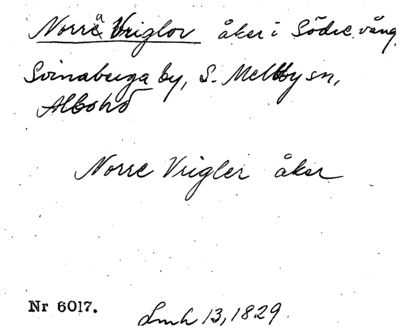 Norrä Vriglov åker i Södre vång,
Svinaberga by, S. Mellby sn,
Albo hd
Norre Vrigler åker
Nr 6017. Lmh 13, 1829.